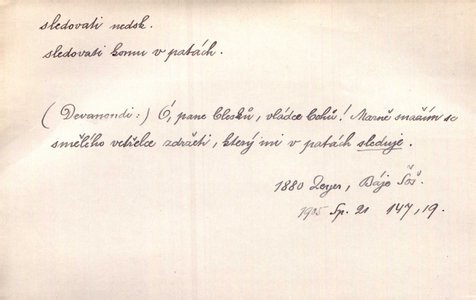 sledovati nedok.
sledovati komu v patách.
(Devanondi:) Ó, pane Blesků, vládce Bohů! Marně snažím se
smělého vetřelce zdržeti, který mi v patách sleduje.
1880 Zeyer, Báje Šoš.
1905 Sp. 21 147,19.